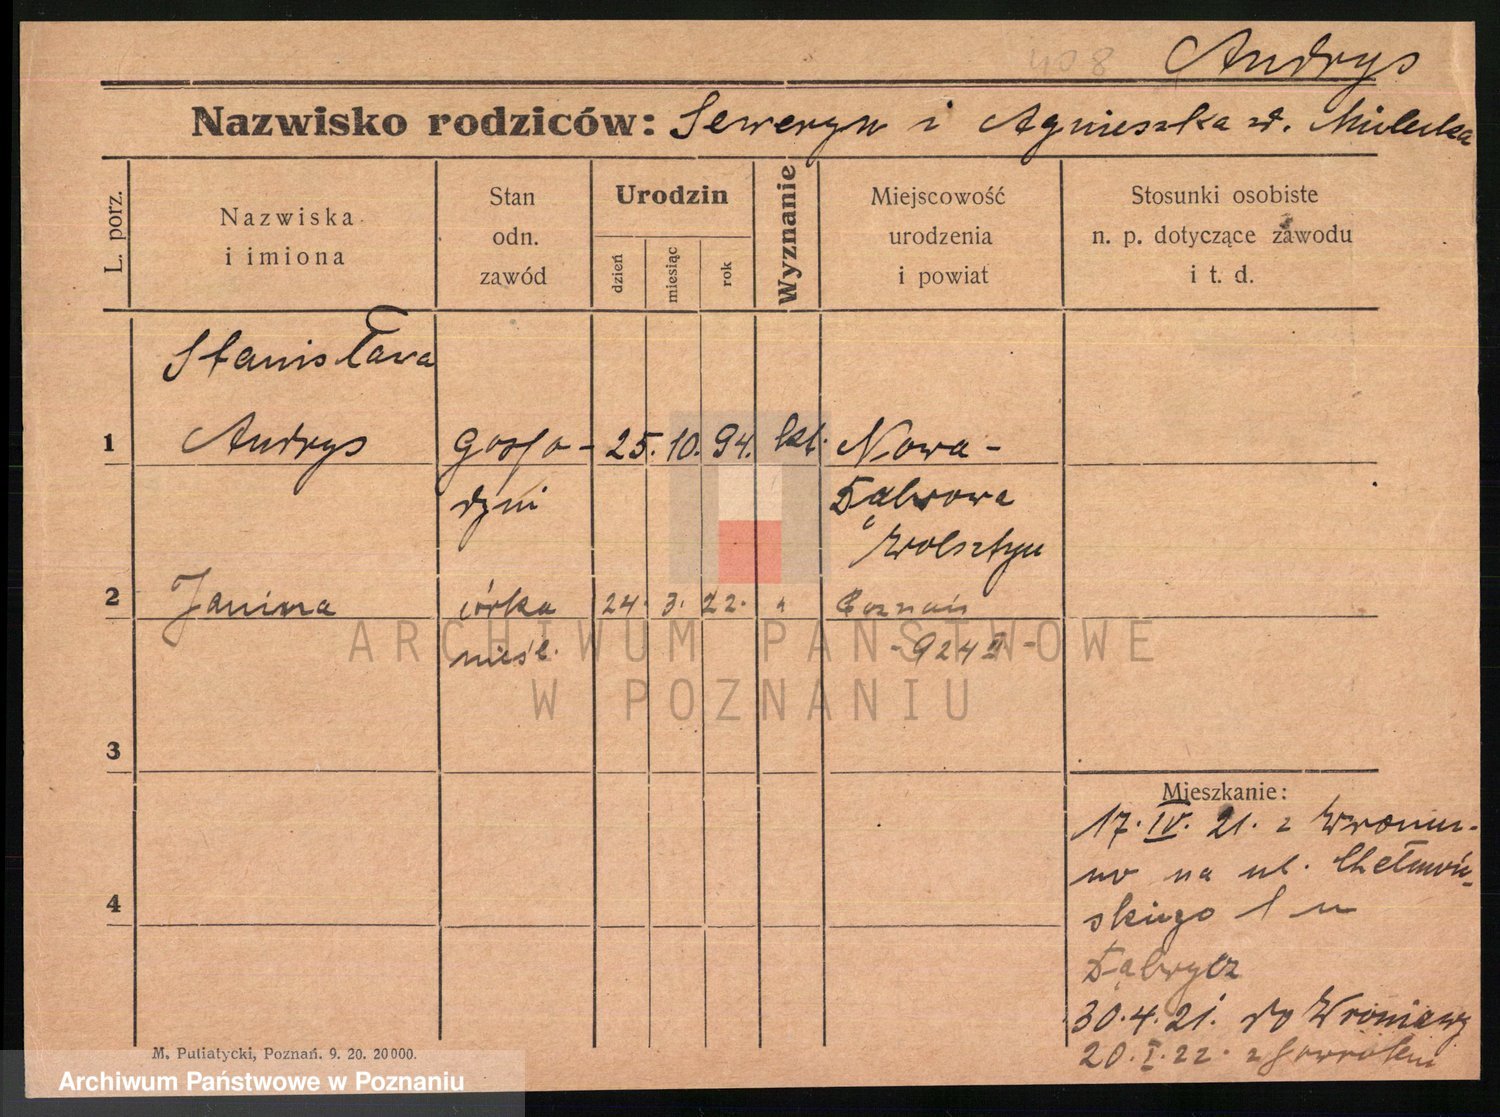 408 Andrys
Nazwisko rodziców: Seweryn i Agnieszka z d.
L. porz.
Nazwiska
i imiona
Stan
odn.
zawód
Urodzin
dzień
miesiąc
rok
Wyznanie
Miejscowość
urodzenia
i powiat
Stosunki osobiste
n. p. dotyczące zawodu
i t. d.
Stanisława
1 Andrys Gospo- 25. 10. 94. kt. Nowa-
dyni Dąbrowa
Wolsztyn
2 Janina córka 24. 3. 22. " Poznań
nieśl. -924 II-
3
4
Mieszkanie:
17. IV. 21. z
na ul. Chełmoń-
skiego 1 u
30.4.21. do Wroniawy
20.I.22. z powrotem
M. Putiatycki, Poznań. 9. 20. 20000.
ARCHIWUM PAŃSTWOWE
W POZNANIU
Archiwum Państwowe w Poznaniu